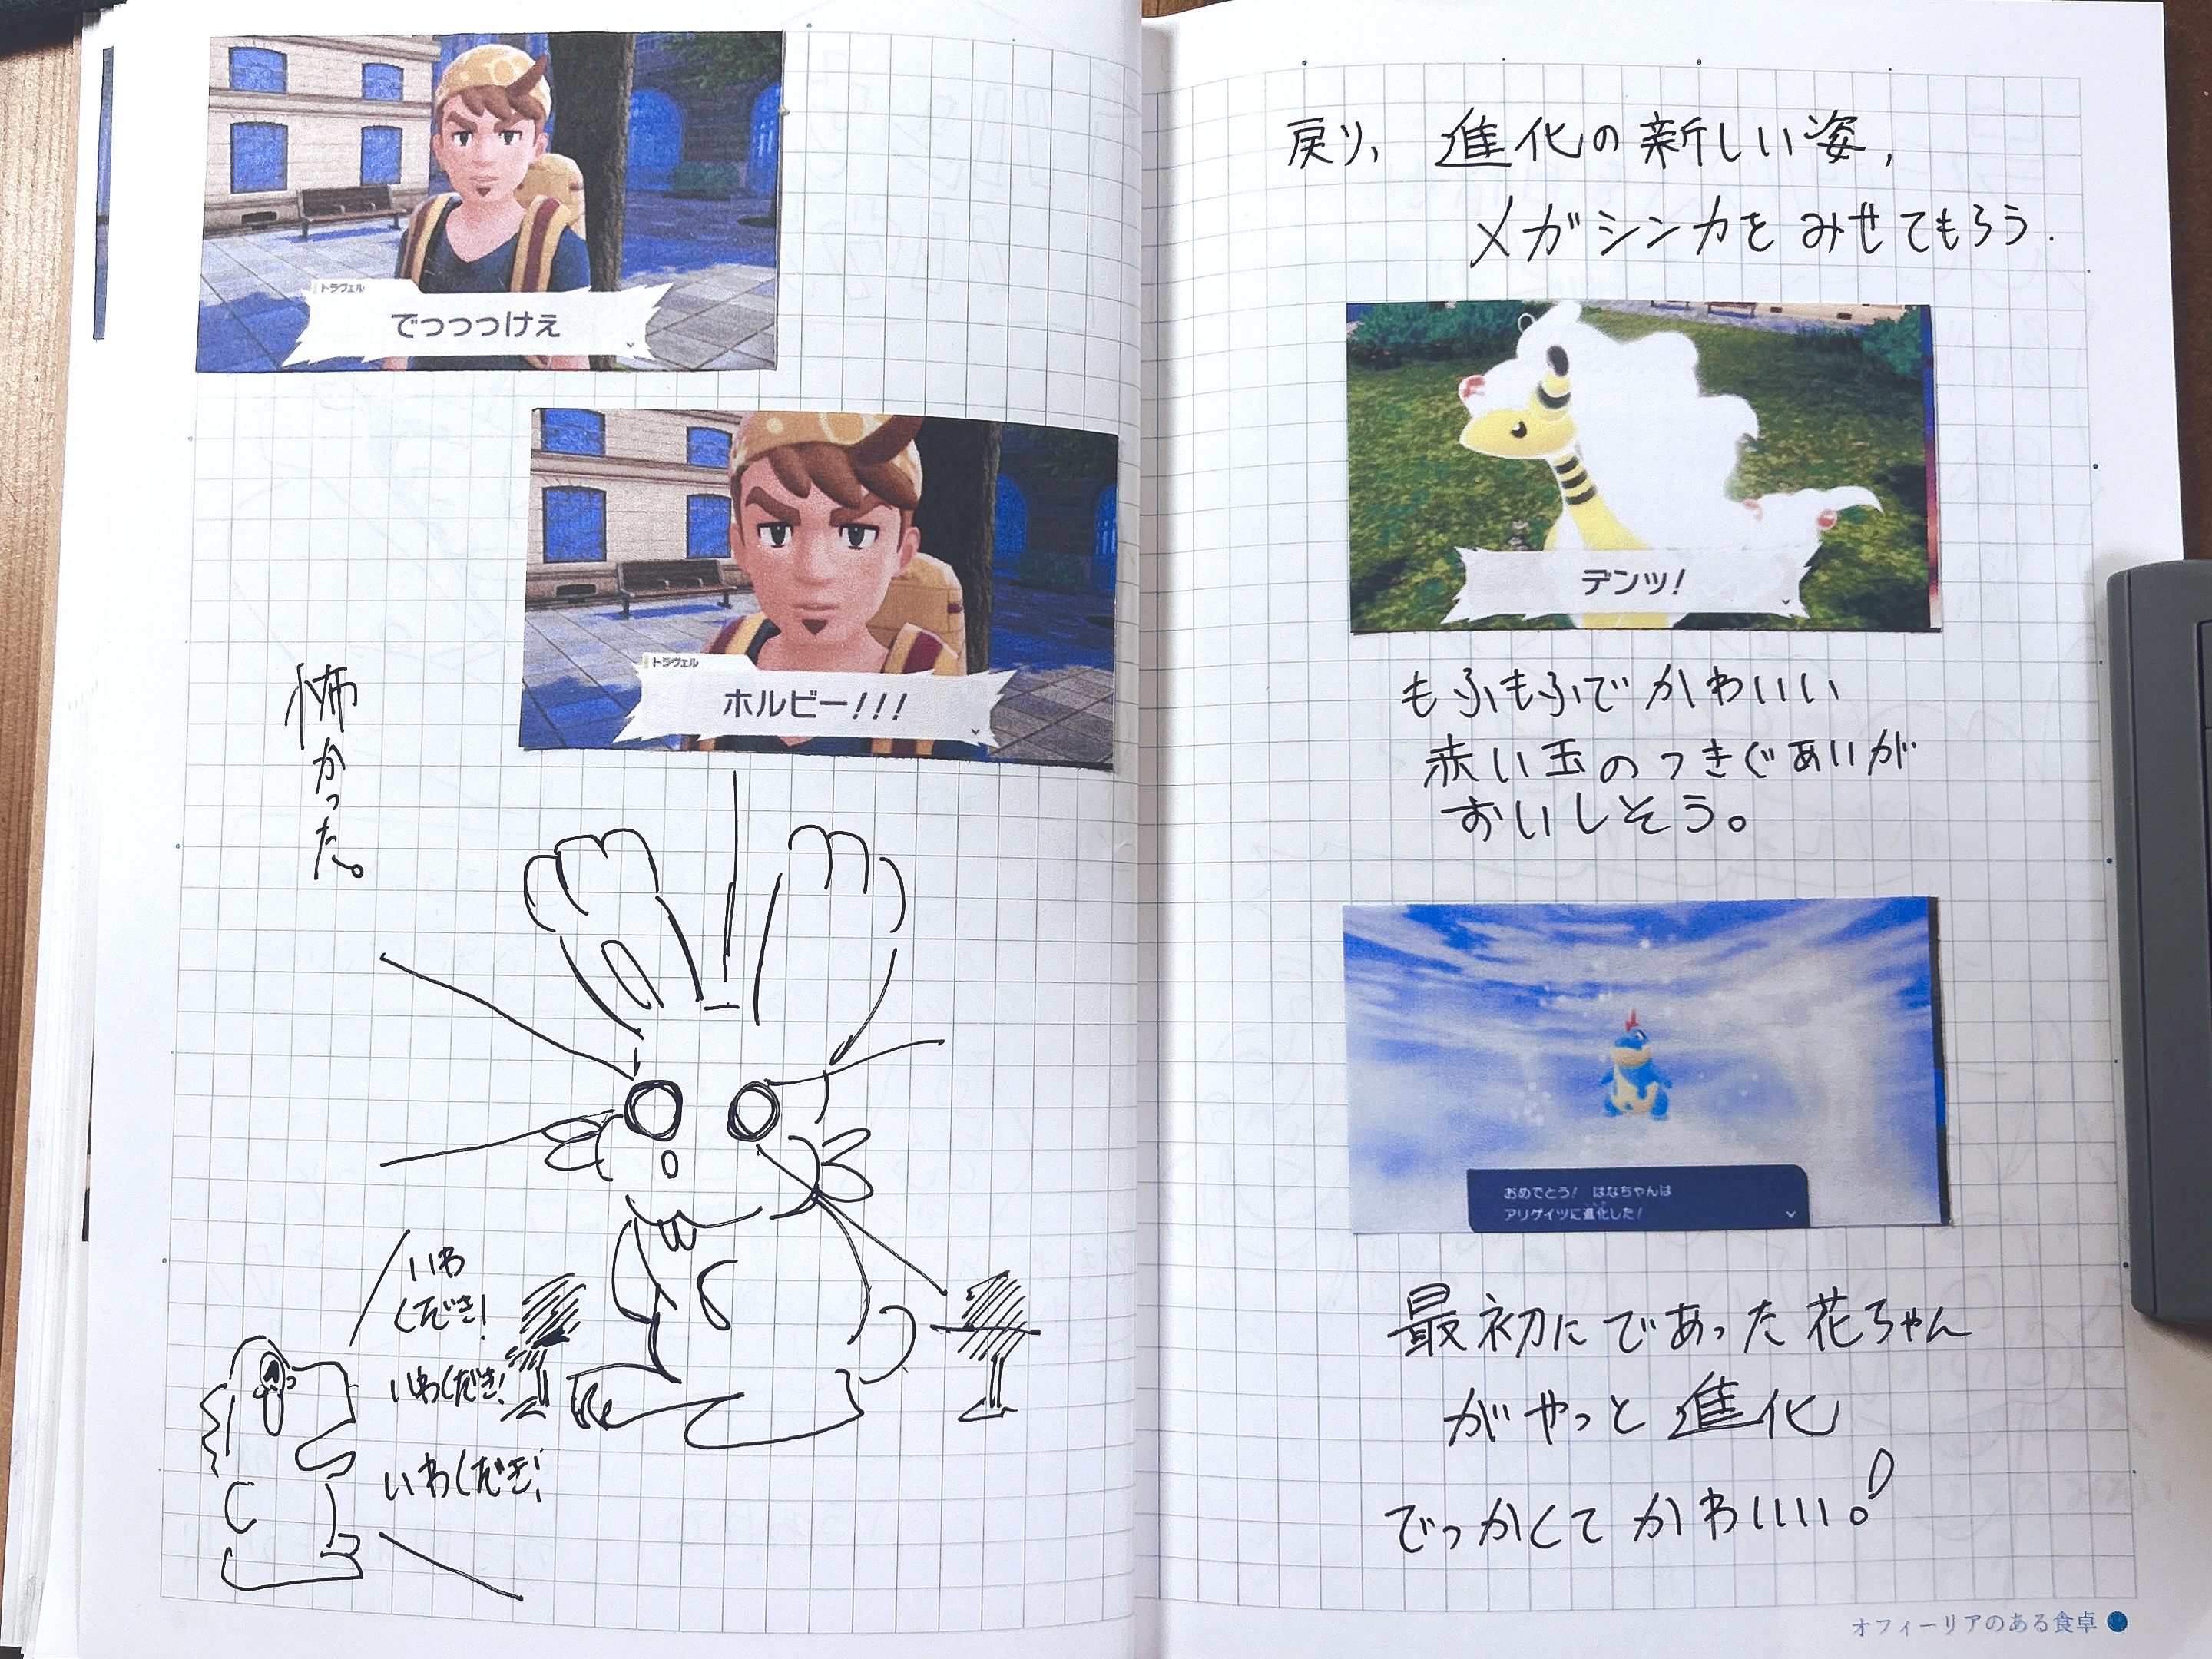 トラヴェル
でっっっけえ
トラヴェル
ホルビー!!!
怖かった。
いわ
くだき!
いわくだき!
いわくだき!
戻り、進化の新しい姿、
メガシンカをみせてもらう.
デンッ!
もふもふでかわいい
赤い玉のつきぐあいが
おいしそう。
おめでとう! はなちゃんは
アリゲイツに進化した!
最初にであった花ちゃん
がやっと進化
でっかくてかわいいい。
オフィーリアのある食卓